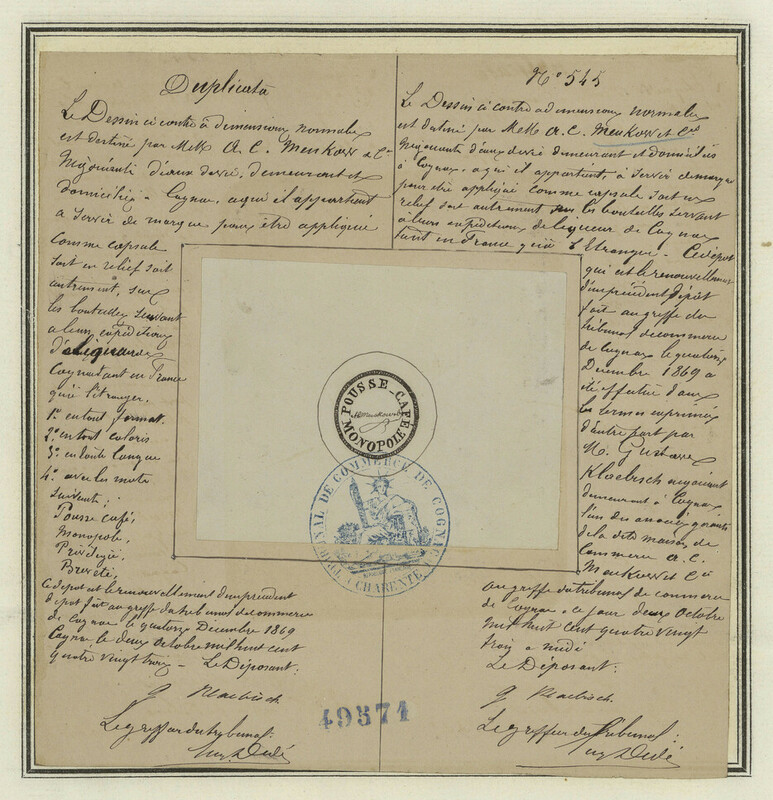 Duplicata
Le Dessin ci contre à dimensions normales
est destiné par MM A. C. Meukow & Cie
Négociants d'eaux de vie, demeurant et
domiciliés à Cognac, à qui il appartient
à servir de marque pour être appliqué
comme capsule
soit en relief soit
autrement, sur
les bouteilles servant
à leurs expéditions
de liqueur de
Cognac tant en France
qu'à l'étranger.
1º en tout format.
2º en tout coloris
3º en toute langue
4º avec les mots
suivants:
Pousse café,
Monopole,
Privilégié,
Breveté,
Ce dépôt est le renouvellement d'un précédent
dépôt fait au greffe du tribunal de commerce
de Cognac le quatorze Décembre 1869
Cognac le deux Octobre mil huit cent
quatre vingt trois - Le Déposant:
G Klaebisch
Le greffier du tribunal:
Dédé
Nº 545
Le Dessin ci contre à dimensions normales
est destiné par MM A. C. Meukow et Cie
Négociants d'eaux de vie demeurant et domiciliés
à Cognac, à qui il appartient, à servir de marque
pour être appliqué comme capsule soit en
relief soit autrement sur les bouteilles servant
à leurs expéditions de liqueur de Cognac
tant en France qu'à l'Etranger - Ce dépôt
qui est le renouvellement
d'un précédent dépôt
fait au greffe du
tribunal de commerce
de Cognac le quatorze
Décembre 1869 a
été effectué dans
les termes exprimés
d'autre part par
M. Gustave
Klaebisch négociant
demeurant à Cognac
l'un des associés gérants
de la dite maison de
Commerce A. C.
Meukow et Cie
au greffe du tribunal de commerce
de Cognac, ce jour deux Octobre
mil huit cent quatre vingt
trois à midi
Le Déposant:
G Klaebisch
Le greffier du tribunal:
Dédé
POUSSE-CAFÉ
MONOPOLE
TRIBUNAL DE COMMERCE DE COGNAC
CHARENTE
49571